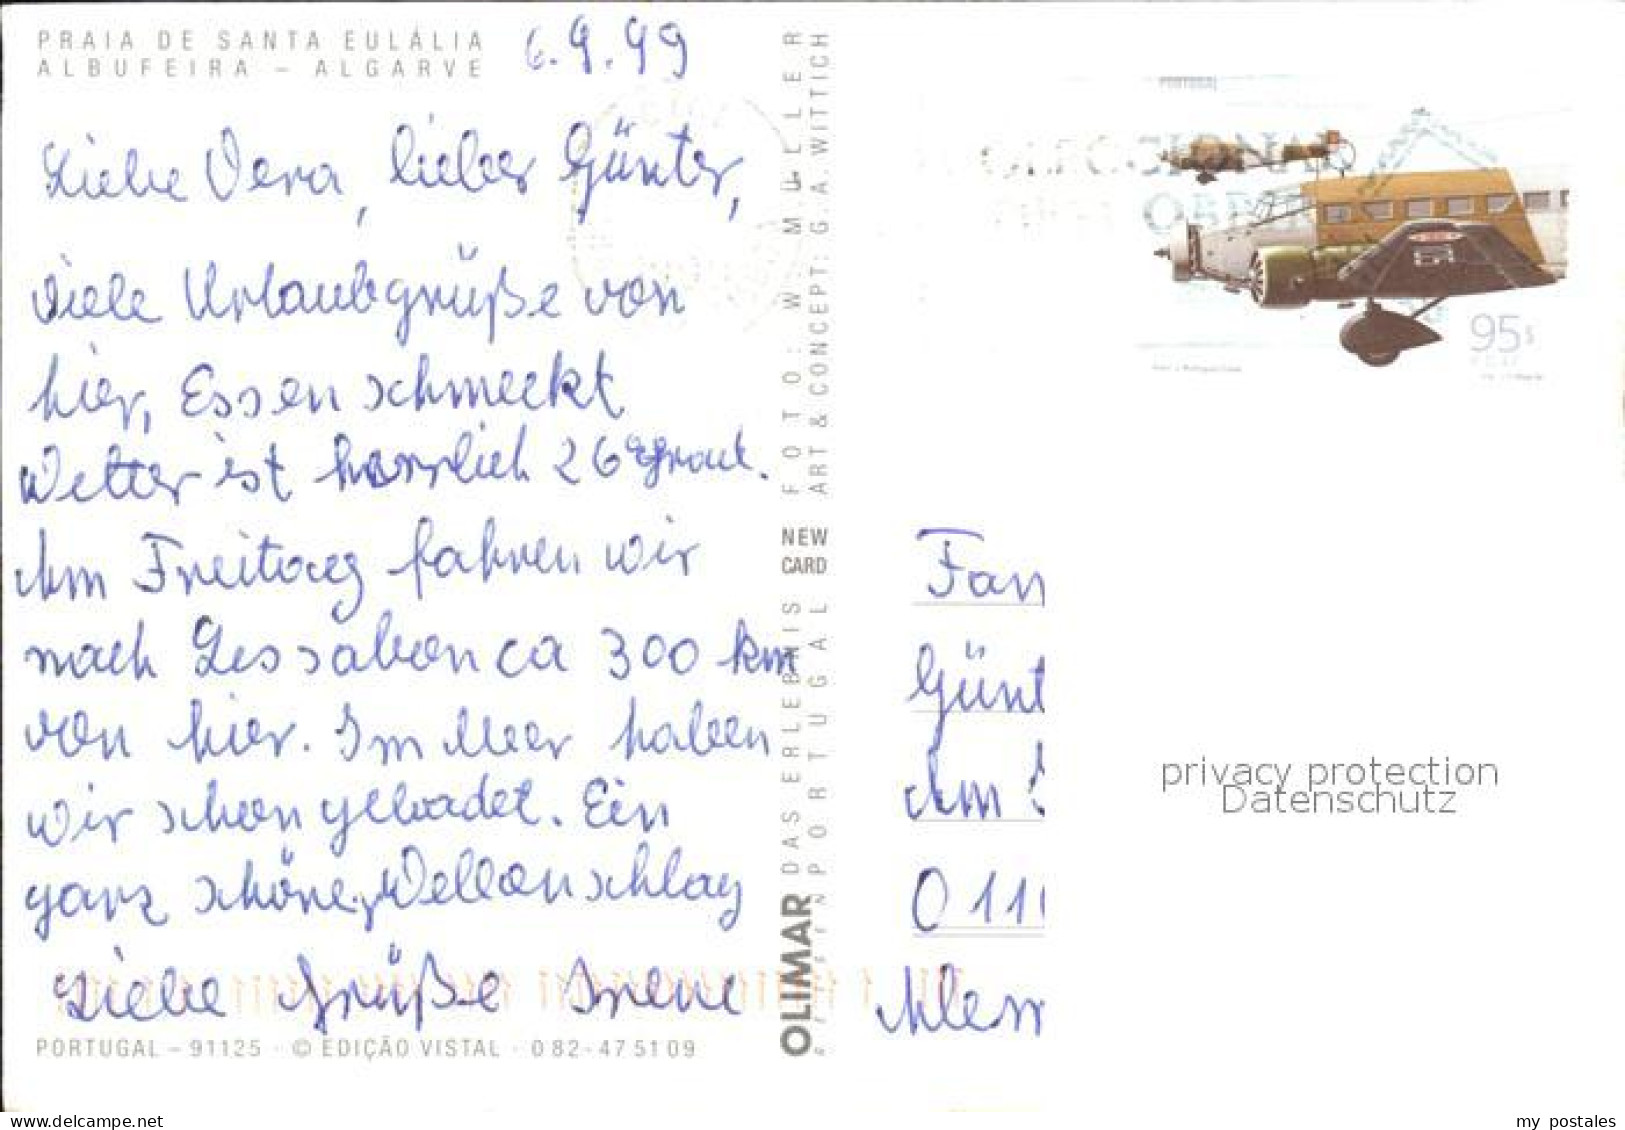 PRAIA DE SANTA EULÁLIA
ALBUFEIRA – ALGARVE
6.9.99
Liebe Vera, lieber Günter,
viele Urlaubsgrüße von
hier, Essen schmeckt
Wetter ist herrlich 26 Grad.
Am Freitag fahren wir
nach Lissabon ca 300 km
von hier. Im Meer haben
wir schon gebadet. Ein
ganz schöner Wellenschlag
Liebe Grüße Irene
PORTUGAL – 91125 · © EDIÇÃO VISTAL · 082-475109
FOTO: W. MÜLLER
ART & CONCEPT: G.A. WITTICH
NEW
CARD
OLIMAR DAS ERLEBNIS
PORTUGAL
PORTUGAL
95$
Fam
Günt
Am
011
Alem
privacy protection
Datenschutz
delcampe.net
my_postales